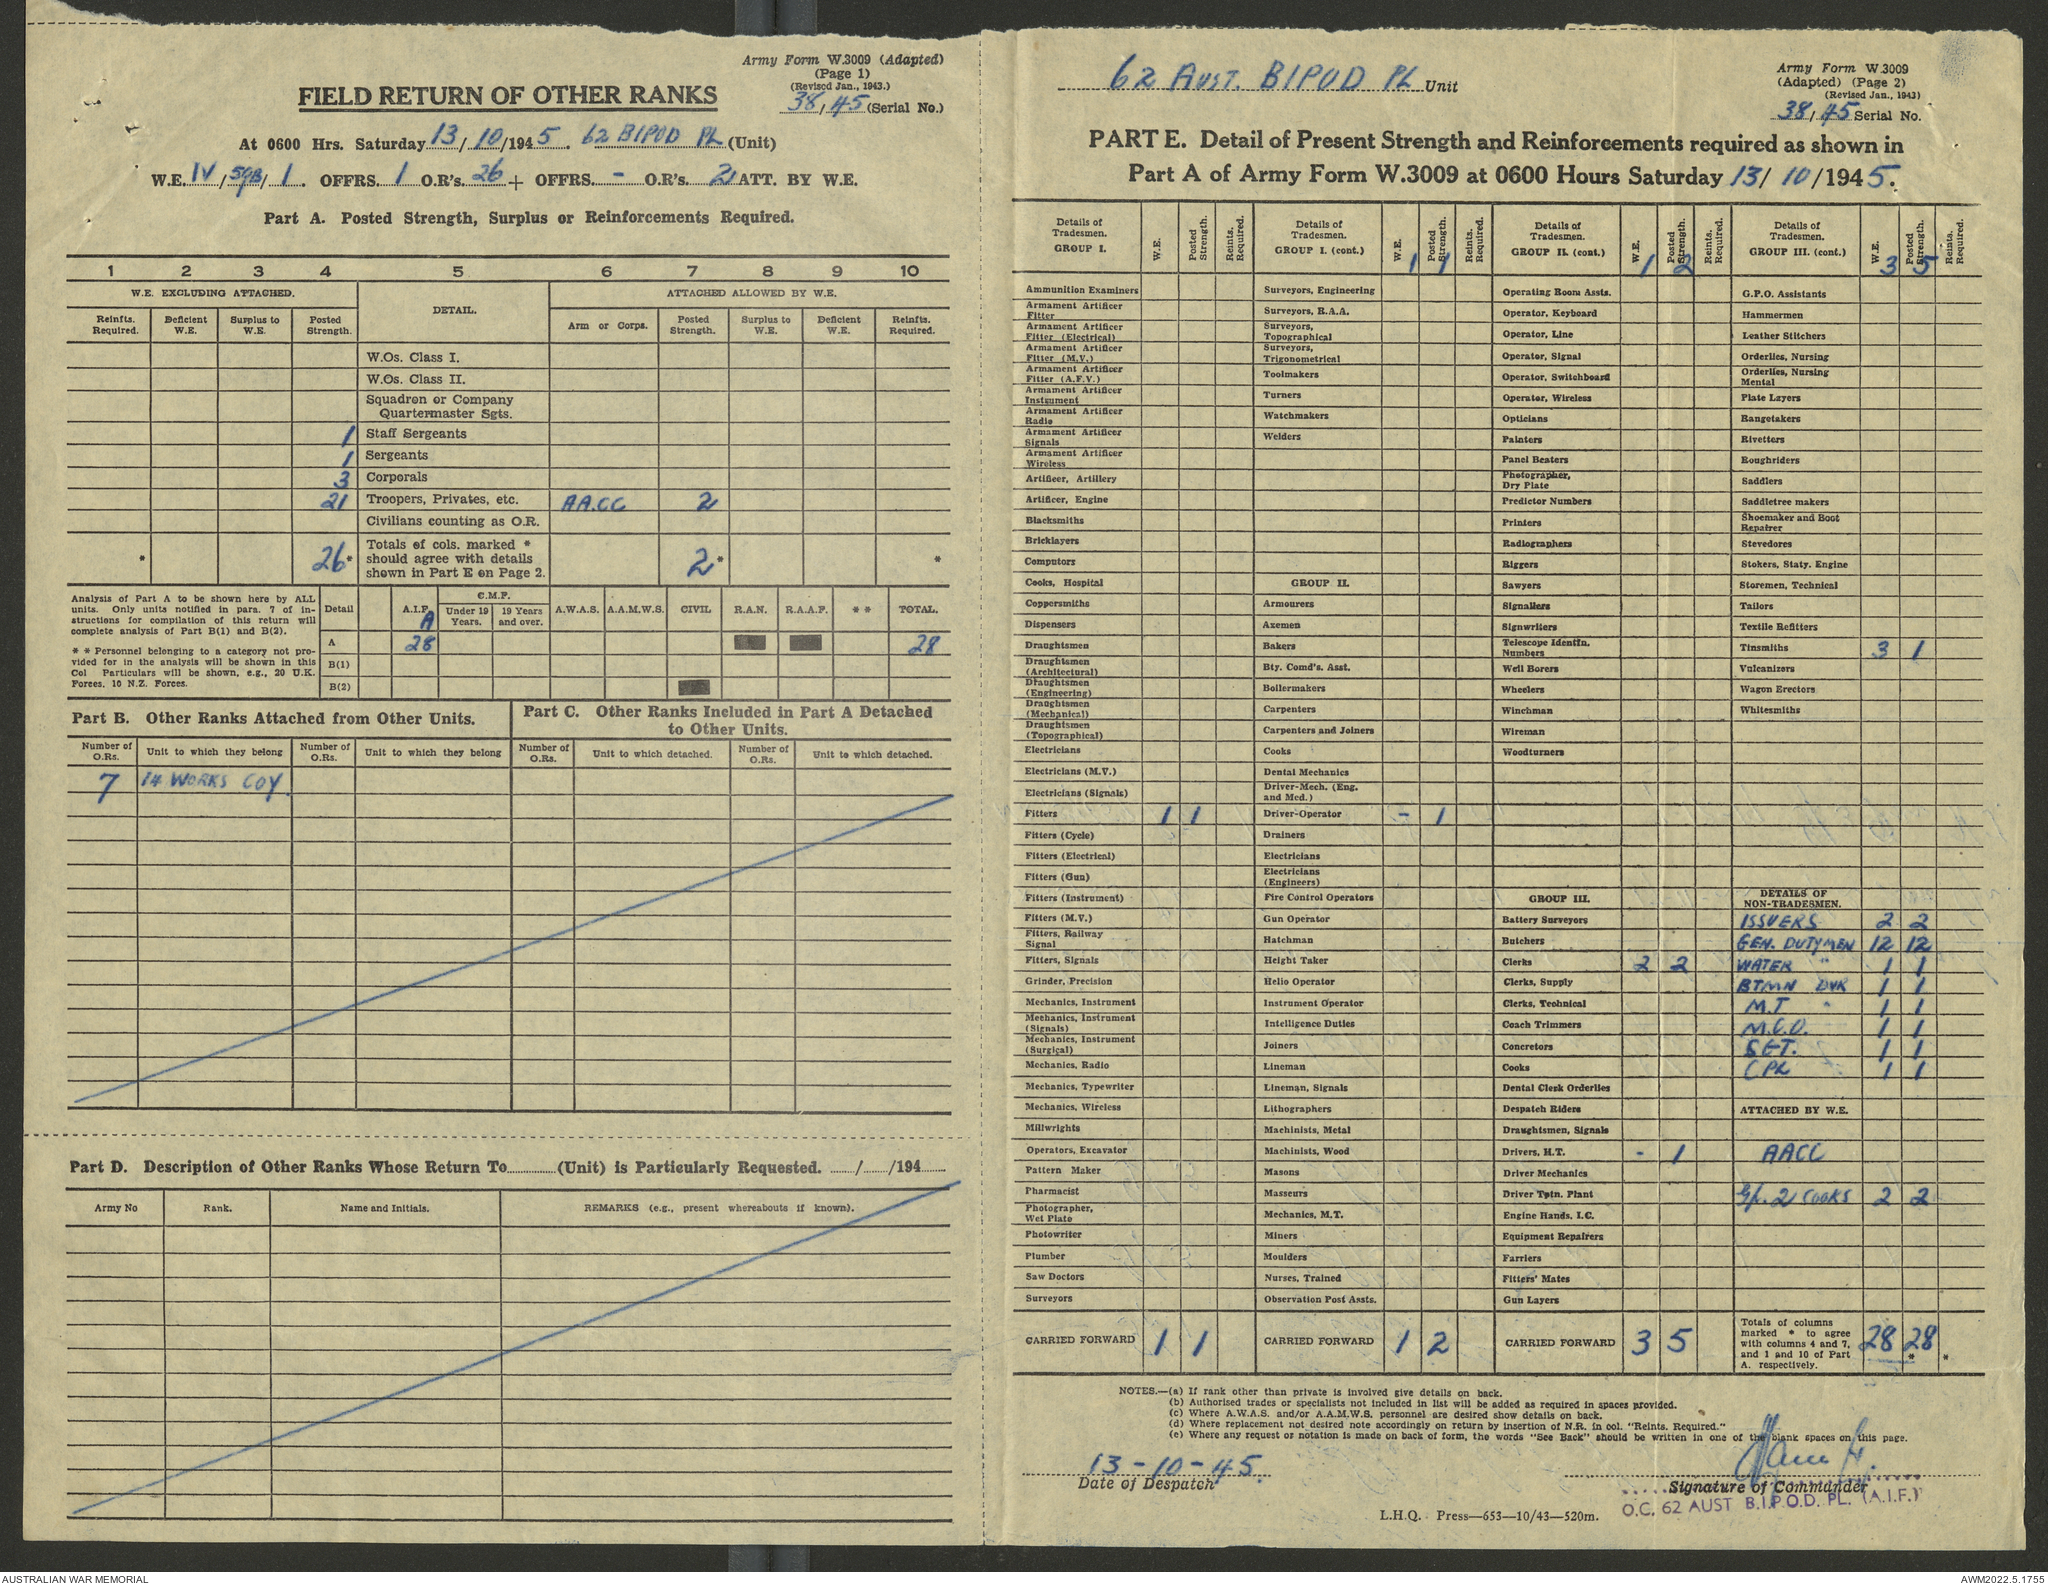 Army Form W.3009 (Adapted)
(Page 1)
(Revised Jan., 1943.)
38/45 (Serial No.)
FIELD RETURN OF OTHER RANKS
At 0600 Hrs. Saturday 13/10/1945. 62 BIPOD PL (Unit)
W.E. IV/59B/1. OFFRS. 1 O.R's. 26 + OFFRS. - O.R's. 2 ATT. BY W.E.
Part A. Posted Strength, Surplus or Reinforcements Required.
1 2 3 4 5 6 7 8 9 10
W.E. EXCLUDING ATTACHED. DETAIL. ATTACHED ALLOWED BY W.E.
Reinfts. Required. Deficient W.E. Surplus to W.E. Posted Strength. Arm or Corps. Posted Strength. Surplus to W.E. Deficient W.E. Reinfts. Required.
W.Os. Class I.
W.Os. Class II.
Squadron or Company
Quartermaster Sgts.
1 Staff Sergeants
1 Sergeants
3 Corporals
21 Troopers, Privates, etc. AA.CC 2
Civilians counting as O.R.
* 26* Totals of cols. marked * should agree with details shown in Part E on Page 2. 2* *
Analysis of Part A to be shown here by ALL
units. Only units notified in para. 7 of in-
structions for compilation of this return will
complete analysis of Part B(1) and B(2).
* * Personnel belonging to a category not pro-
vided for in the analysis will be shown in this
Col Particulars will be shown, e.g., 20 U.K.
Forces, 10 N.Z. Forces.
Detail A.I.F. C.M.F. Under 19 Years. 19 Years and over. A.W.A.S. A.A.M.W.S. CIVIL R.A.N. R.A.A.F. * * TOTAL.
A
A 28 28
B(1)
B(2)
Part B. Other Ranks Attached from Other Units.
Part C. Other Ranks Included in Part A Detached
to Other Units.
Number of O.Rs. Unit to which they belong Number of O.Rs. Unit to which they belong Number of O.Rs. Unit to which detached. Number of O.Rs. Unit to which detached.
7 14 WORKS COY.
Part D. Description of Other Ranks Whose Return To............(Unit) is Particularly Requested. ....../....../194......
Army No Rank. Name and Initials. REMARKS (e.g., present whereabouts if known).
62 AUST. BIPOD PL Unit
Army Form W.3009
(Adapted) (Page 2)
(Revised Jan., 1943)
38/45 Serial No.
PART E. Detail of Present Strength and Reinforcements required as shown in
Part A of Army Form W.3009 at 0600 Hours Saturday 13/10/1945.
Details of Tradesmen. GROUP I. W.E. Posted Strength. Reints. Required.
Ammunition Examiners
Armament Artificer Fitter
Armament Artificer Fitter (Electrical)
Armament Artificer Fitter (M.V.)
Armament Artificer Fitter (A.F.V.)
Armament Artificer Instrument
Armament Artificer Radio
Armament Artificer Signals
Armament Artificer Wireless
Artificer, Artillery
Artificer, Engine
Blacksmiths
Bricklayers
Computors
Cooks, Hospital
Coppersmiths
Dispensers
Draughtsmen
Draughtsmen (Architectural)
Draughtsmen (Engineering)
Draughtsmen (Mechanical)
Draughtsmen (Topographical)
Electricians
Electricians (M.V.)
Electricians (Signals)
Fitters 1 1
Fitters (Cycle)
Fitters (Electrical)
Fitters (Gun)
Fitters (Instrument)
Fitters (M.V.)
Fitters, Railway Signal
Fitters, Signals
Grinder, Precision
Mechanics, Instrument
Mechanics, Instrument (Signals)
Mechanics, Instrument (Surgical)
Mechanics, Radio
Mechanics, Typewriter
Mechanics, Wireless
Millwrights
Operators, Excavator
Pattern Maker
Pharmacist
Photographer, Wet Plate
Photowriter
Plumber
Saw Doctors
Surveyors
CARRIED FORWARD 1 1
Details of Tradesmen. GROUP I. (cont.) W.E. Posted Strength. Reints. Required.
1 1
Surveyors, Engineering
Surveyors, R.A.A.
Surveyors, Topographical
Surveyors, Trigonometrical
Toolmakers
Turners
Watchmakers
Welders
GROUP II.
Armourers
Axemen
Bakers
Bty. Comd's. Asst.
Boilermakers
Carpenters
Carpenters and Joiners
Cooks
Dental Mechanics
Driver-Mech. (Eng. and Med.)
Driver-Operator - 1
Drainers
Electricians
Electricians (Engineers)
Fire Control Operators
Gun Operator
Hatchman
Height Taker
Helio Operator
Instrument Operator
Intelligence Duties
Joiners
Lineman
Lineman, Signals
Lithographers
Machinists, Metal
Machinists, Wood
Masons
Masseurs
Mechanics, M.T.
Miners
Moulders
Nurses, Trained
Observation Post Assts.
CARRIED FORWARD 1 2
Details of Tradesmen. GROUP II. (cont.) W.E. Posted Strength. Reints. Required.
1 2
Operating Room Assts.
Operator, Keyboard
Operator, Line
Operator, Signal
Operator, Switchboard
Operator, Wireless
Opticians
Painters
Panel Beaters
Photographer, Dry Plate
Predictor Numbers
Printers
Radiographers
Riggers
Sawyers
Signallers
Signwriters
Telescope Identfn. Numbers
Well Borers
Wheelers
Winchman
Wireman
Woodturners
GROUP III.
Battery Surveyors
Butchers
Clerks 2 2
Clerks, Supply
Clerks, Technical
Coach Trimmers
Concretors
Cooks
Dental Clerk Orderlies
Despatch Riders
Draughtsmen, Signals
Drivers, H.T. - 1
Driver Mechanics
Driver Tptn. Plant
Engine Hands, I.C.
Equipment Repairers
Farriers
Fitters' Mates
Gun Layers
CARRIED FORWARD 3 5
Details of Tradesmen. GROUP III. (cont.) W.E. Posted Strength. Reints. Required.
3 5
G.P.O. Assistants
Hammermen
Leather Stitchers
Orderlies, Nursing
Orderlies, Nursing Mental
Plate Layers
Rangetakers
Rivetters
Roughriders
Saddlers
Saddletree makers
Shoemaker and Boot Repairer
Stevedores
Stokers, Staty. Engine
Storemen, Technical
Tailors
Textile Refitters
Tinsmiths 3 1
Vulcanizers
Wagon Erectors
Whitesmiths
DETAILS OF NON-TRADESMEN.
ISSUERS 2 2
GEN. DUTYMEN 12 12
WATER " 1 1
BTMN DVR 1 1
M.T " 1 1
N.C.O. 1 1
SGT. 1 1
CPL 1 1
ATTACHED BY W.E.
AACC
Gp. 2 COOKS 2 2
Totals of columns marked * to agree with columns 4 and 7, and 1 and 10 of Part A. respectively. 28 28 * *
NOTES.—(a) If rank other than private is involved give details on back.
(b) Authorised trades or specialists not included in list will be added as required in spaces provided.
(c) Where A.W.A.S. and/or A.A.M.W.S. personnel are desired show details on back.
(d) Where replacement not desired note accordingly on return by insertion of N.R. in col. "Reints. Required."
(e) Where any request or notation is made on back of form, the words "See Back" should be written in one of the blank spaces on this page.
13-10-45.
Date of Despatch
Signature of Commander
O.C. 62 AUST B.I.P.O.D. PL. (A.I.F.)
L.H.Q. Press—653—10/43—520m.
AUSTRALIAN WAR MEMORIAL
AWM2022.5.1755